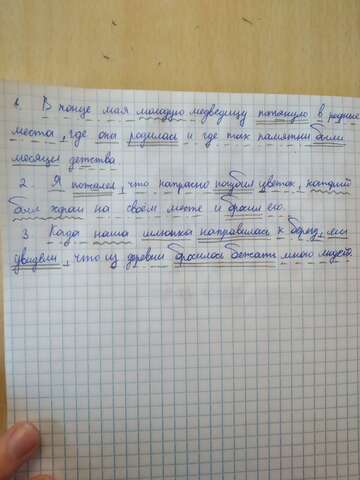 1. В конце мая молодую медведицу потянуло в родные
места, где она родилась и где так памятны были
месяцы детства
2. Я пожалел, что напрасно погубил цветок, который
был хорош на своём месте и бросил его.
3 Когда наша шлюпка направилась к берегу, мы
увидели, что из деревни бросилось бежать много людей.